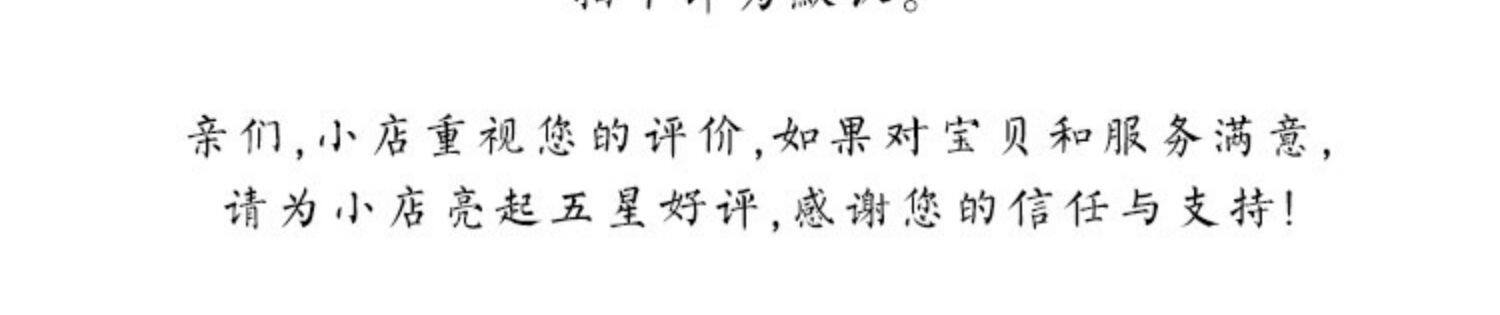 亲们,小店重视您的评价,如果对宝贝和服务满意,
请为小店亮起五星好评,感谢您的信任与支持!